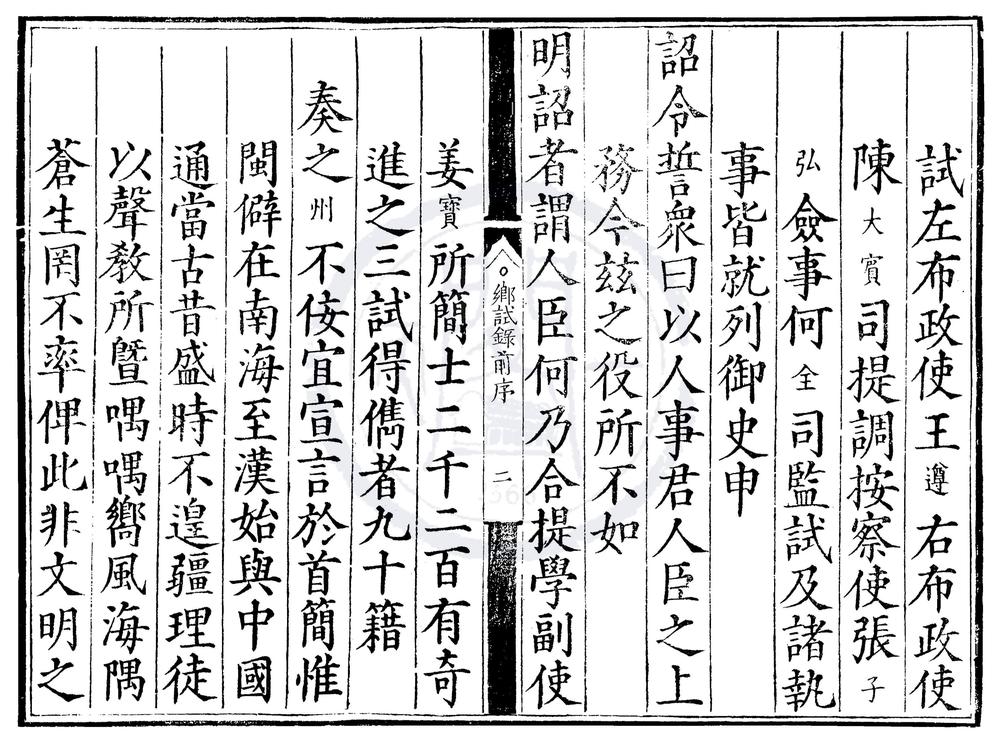 試左布政使王遵右布政使
陳大賓司提調按察使張子
弘僉事何全司監試及諸執
事皆就列御史申
詔令誓衆曰以人事君人臣之上
務今兹之役所不如
明詔者謂人臣何乃合提學副使
鄉試錄前序 二
姜寶所簡士二千二百有奇
進之三試得儁者九十籍
奏之州不佞宜宣言於首簡惟
閩僻在南海至漢始與中國
通當古昔盛時不遑疆理徒
以聲敎所曁喁喁嚮風海隅
蒼生罔不率俾此非文明之